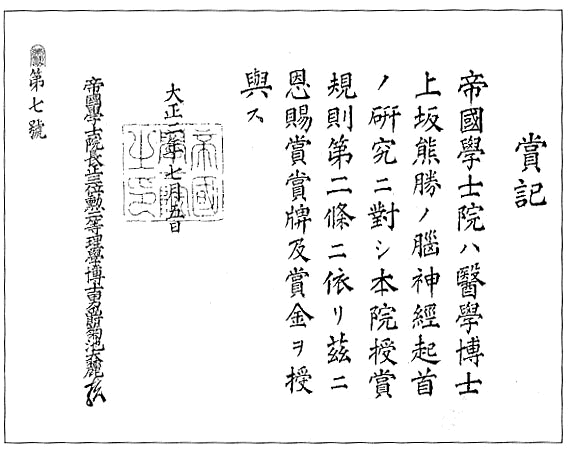 賞記
帝國學士院ハ醫學博士
上坂熊勝ノ腦神經起首
ノ硏究ニ對シ本院授賞
規則第二條ニ依リ茲ニ
恩賜賞賞牌及賞金ヲ授
與ス
大正二年七月五日
帝國學士院長正三位勳一等理學博士男爵菊池大麓
第七號